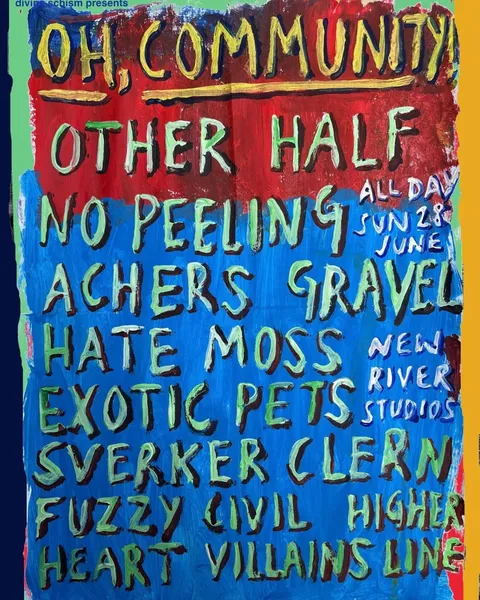 divine schism presents
OH, COMMUNITY!
OTHER HALF
NO PEELING
ALL DAY
SUN 28
JUNE
ACHERS GRAVEL
HATE MOSS
NEW
RIVER
STUDIOS
EXOTIC PETS
SVERKER CLERN
FUZZY CIVIL HIGHER
HEART VILLAINS LINE